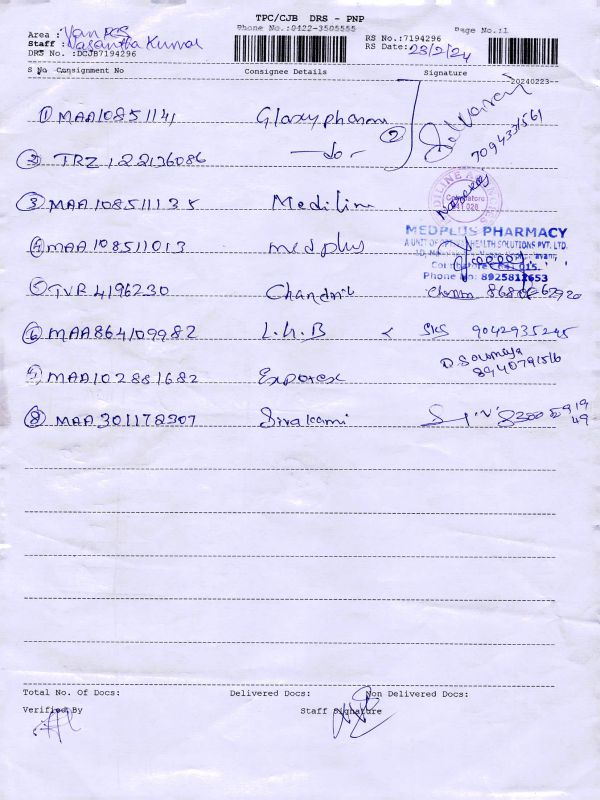 TPC/CJB DRS - PNP
Phone No.:0422-3505555
Page No.:1
Area :
Staff : Vasantha Kumar
RS No.:7194296
RS Date: 23/2/24
DRS No. :DCJB7194296
S No Consignment No Consignee Details Signature
20240223
1 MAA108511141 Glaxypharma
7094331561
2 TRZ122136086 -do-
3 MAA108511135 Mediline
4 MAA108511013 medplus
MEDPLUS PHARMACY
A UNIT OF HEALTH SOLUTIONS PVT. LTD.
Phone No: 8925812653
5 TVR4196230 Chandril
6 MAA864109982 L.G.B SKS 9042935245
7 MAA102881682 Exporex D Soumya
8940791516
8 MAA301178907 Sivakami
Total No. Of Docs: Delivered Docs: Non Delivered Docs:
Verified By Staff Signature